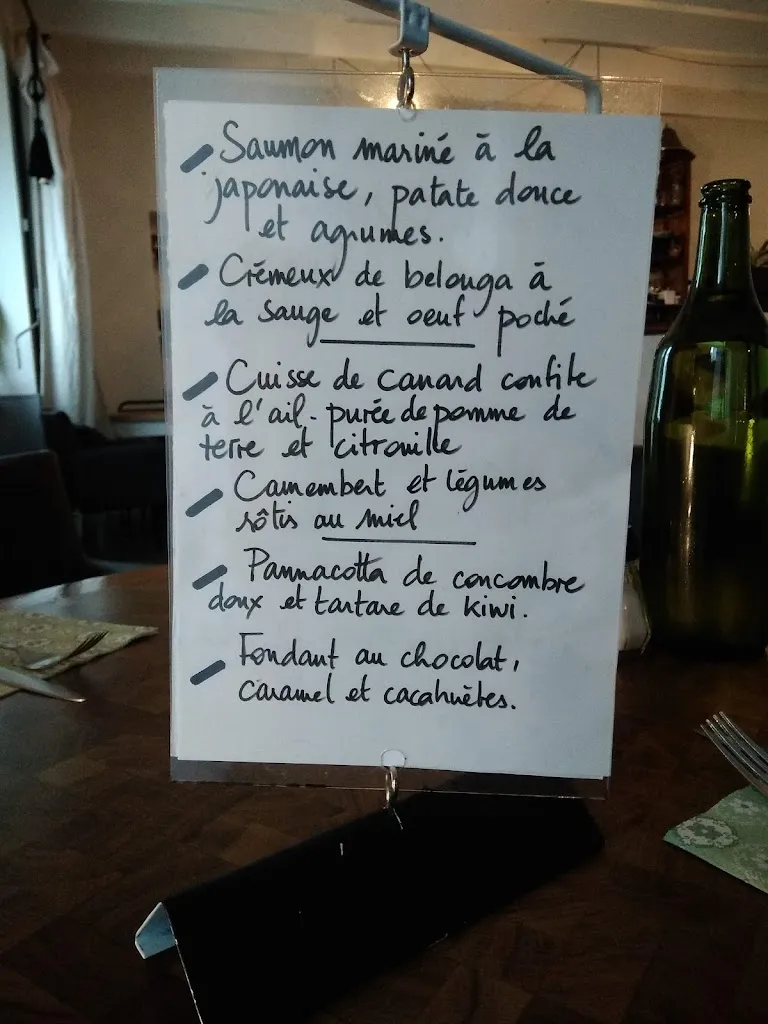 Saumon mariné à la
japonaise, patate douce
et agrumes.
Crémeux de belouga à
la sauge et oeuf poché
Cuisse de canard confite
à l'ail - purée de pomme de
terre et citrouille
Camembert et légumes
rôtis au miel
Pannacotta de concombre
doux et tartare de kiwi.
Fondant au chocolat,
caramel et cacahuètes.